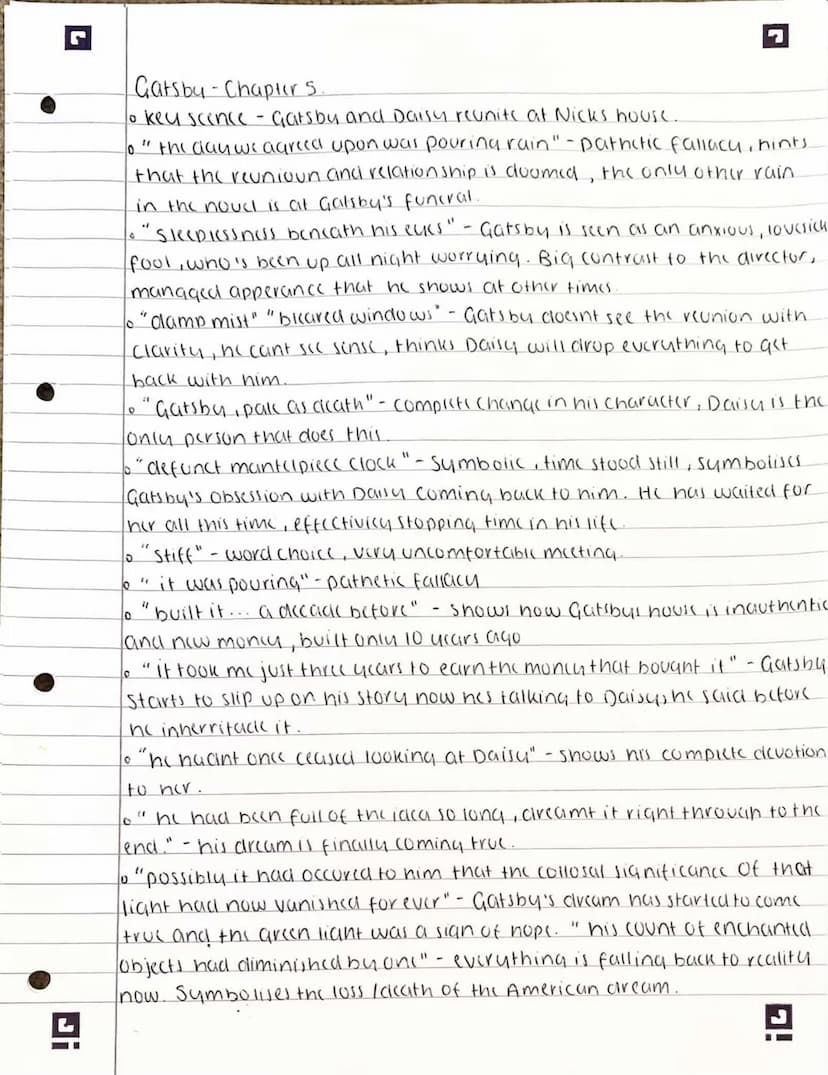 Gatsby - Chapter 5.
o key scence - Gatsby and Daisy reunite at Nicks house.
o " the day we agreed upon was pouring rain" - pathetic fallacy, hints
that the reunioun and relationship is doomed, the only other rain
in the novel is at Gatsby's funeral.
o "sleeplessness beneath his eyes" - Gatsby is seen as an anxious, lovesick
fool, who's been up all night worrying. Big contrast to the director,
managed apperance that he shows at other times.
o "damp mist" "bleared windows" - Gatsby doesnt see the reunion with
clarity, he cant see sense, thinks Daisy will drop everything to get
back with him.
o "Gatsby, pale as death" - complete change in his character, Daisy is the
only person that does this.
o "defunct mantelpiece clock" - symbolic, time stood still, symbolises
Gatsby's obsession with Daisy coming back to him. He has waited for
her all this time, effectively stopping time in his life.
o "stiff" - word choice, very uncomfortable meeting.
o " it was pouring" - pathetic fallacy
o "built it... a decade before" - shows how Gatsbys house is inauthentic
and new money, built only 10 years ago
o "it took me just three years to earn the money that bought it" - Gatsby
starts to slip up on his story now hes talking to Daisy, he said before
he inherritade it.
o "he hadnt once ceased looking at Daisy" - shows his complete devotion
to her.
o " he had been full of the idea so long, dreamt it right through to the
end." - his dream is finally coming true.
o "possibly it had occured to him that the collosal significance of that
light had now vanished forever" - Gatsby's dream has started to come
true and the green light was a sign of hope. " his count of enchanted
objects had diminished by one" - everything is falling back to reality
now. Symbolises the loss / death of the American dream.